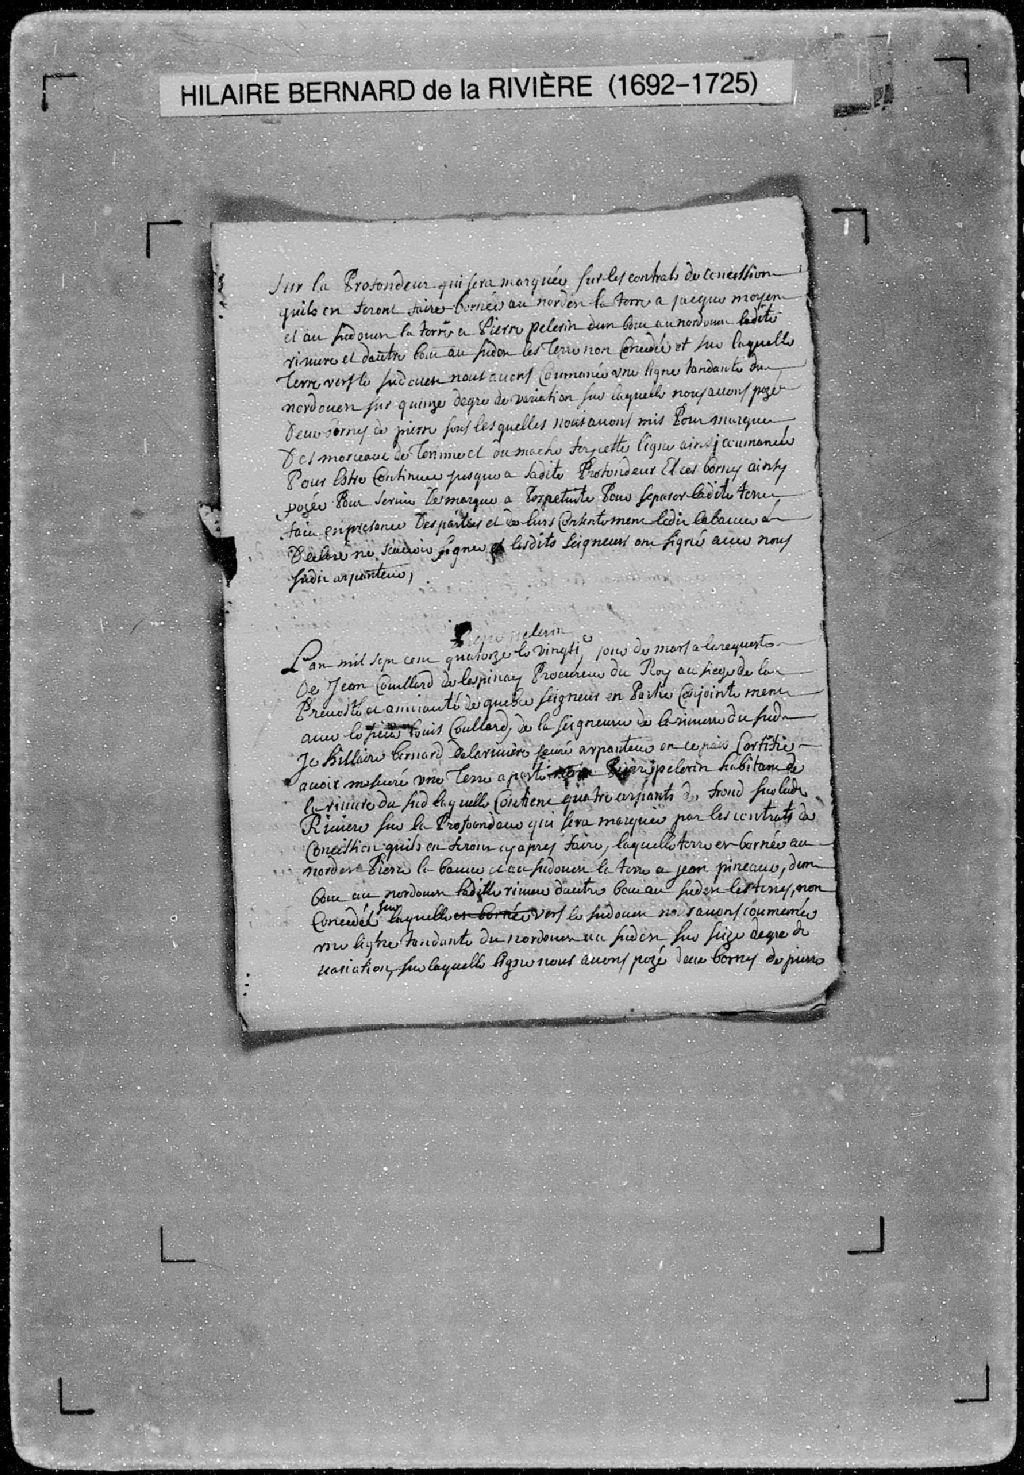 HILAIRE BERNARD de la RIVIÈRE (1692-1725)
Sur la Profondeur qui sera marquée sur les contrats de Concession
quils en feront faire bornée au nordén la terre a jacque moyen
et au sudouen la terre a Pierre pelerin dun bou au nordouen ladite
riviere et dautre bou au sudén les Terre non Concedé et sur laquelle
Terre vers le sudouen nous avons Coumancé une ligne tandante du
nordouen sur quinze degre de variation sur laquelle nous avons pozé
Deux bornes de pierre sous lesquelles nous avons mis Pour marque
Des morceaux de Terrine et du mache fer cette ligne ainsi coumancée
Pour Estre Continué jusque a ladite Profondeur Et ces bornes ainsy
pozée Pour servir de marque a Perpetuité Pour separer ladite terre
fait en presance Des parties et de leurs Consentement ledit labaume a
Declaré ne scavoir signer et lesdits seigneurs on signé avec nous
sudit arpenteur,
Pierre pelerin
Lan mil sept cent quatorze le vingtie jour de mars a la requeste
De Jean Couillard de lespinay Procureur du Roy au siege de la
Prevosté et amirauté de quebec seigneur en Partie Conjointement
avec le sieur louis Coullard, de la seigneurie de la riviere du sud
Je hillaire bernard delariviere juré arpenteur en ce païs Certifie
avoir mesuré une Terre apartenante Pierre pelerin habitant de
la riviere du sud laquelle Contient quatre arpants de frond sur ladite
Riviere sur la Profondeur qui sera marquée par les contrats de
Concession quils en feront cy apres faire, laquelle terre es bornée au
norden Pierre la baume et au sudouen la terre a jean pineau, dun
bou au nordouen ladite riviere dautre bou au suden les terres, non
Concedées sur laquelle en bornée vers le sudouen nous avons coumencée
une lighe tandante du nordouen au sudén sur seize degre de
variation, sur laquelle ligne nous avons pozé deux bornes de pierre